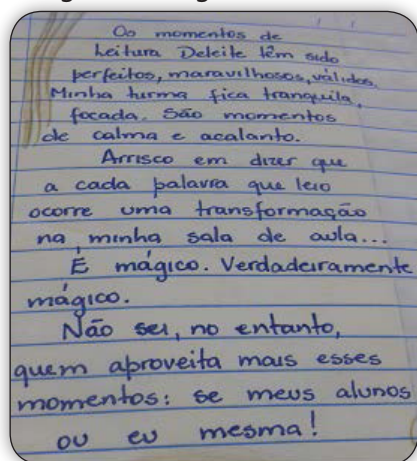 Os momentos de
Leitura Deleite têm sido
perfeitos, maravilhosos, válidos.
Minha turma fica tranquila,
focada. São momentos
de calma e acalanto.
Arrisco em dizer que
a cada palavra que leio
ocorre uma transformação
na minha sala de aula...
É mágico. Verdadeiramente
mágico.
Não sei, no entanto,
quem aproveita mais esses
momentos: se meus alunos
ou eu mesma!